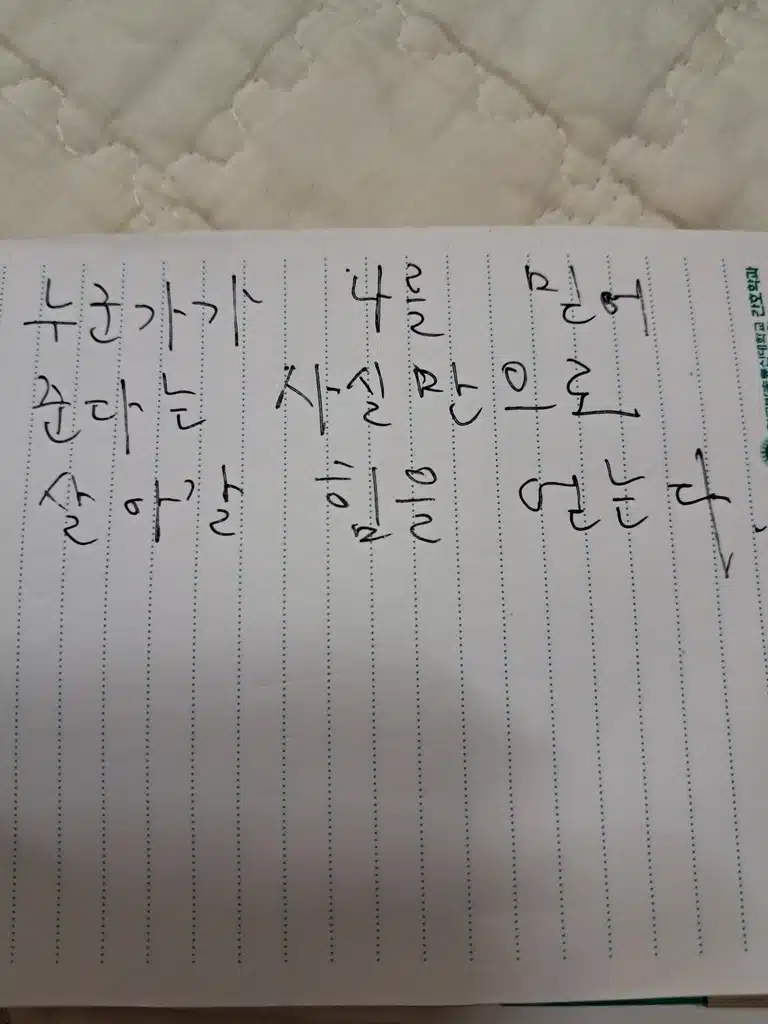 누군가가 나를 믿어
준다는 사실만으로
살아갈 힘을 얻는다.